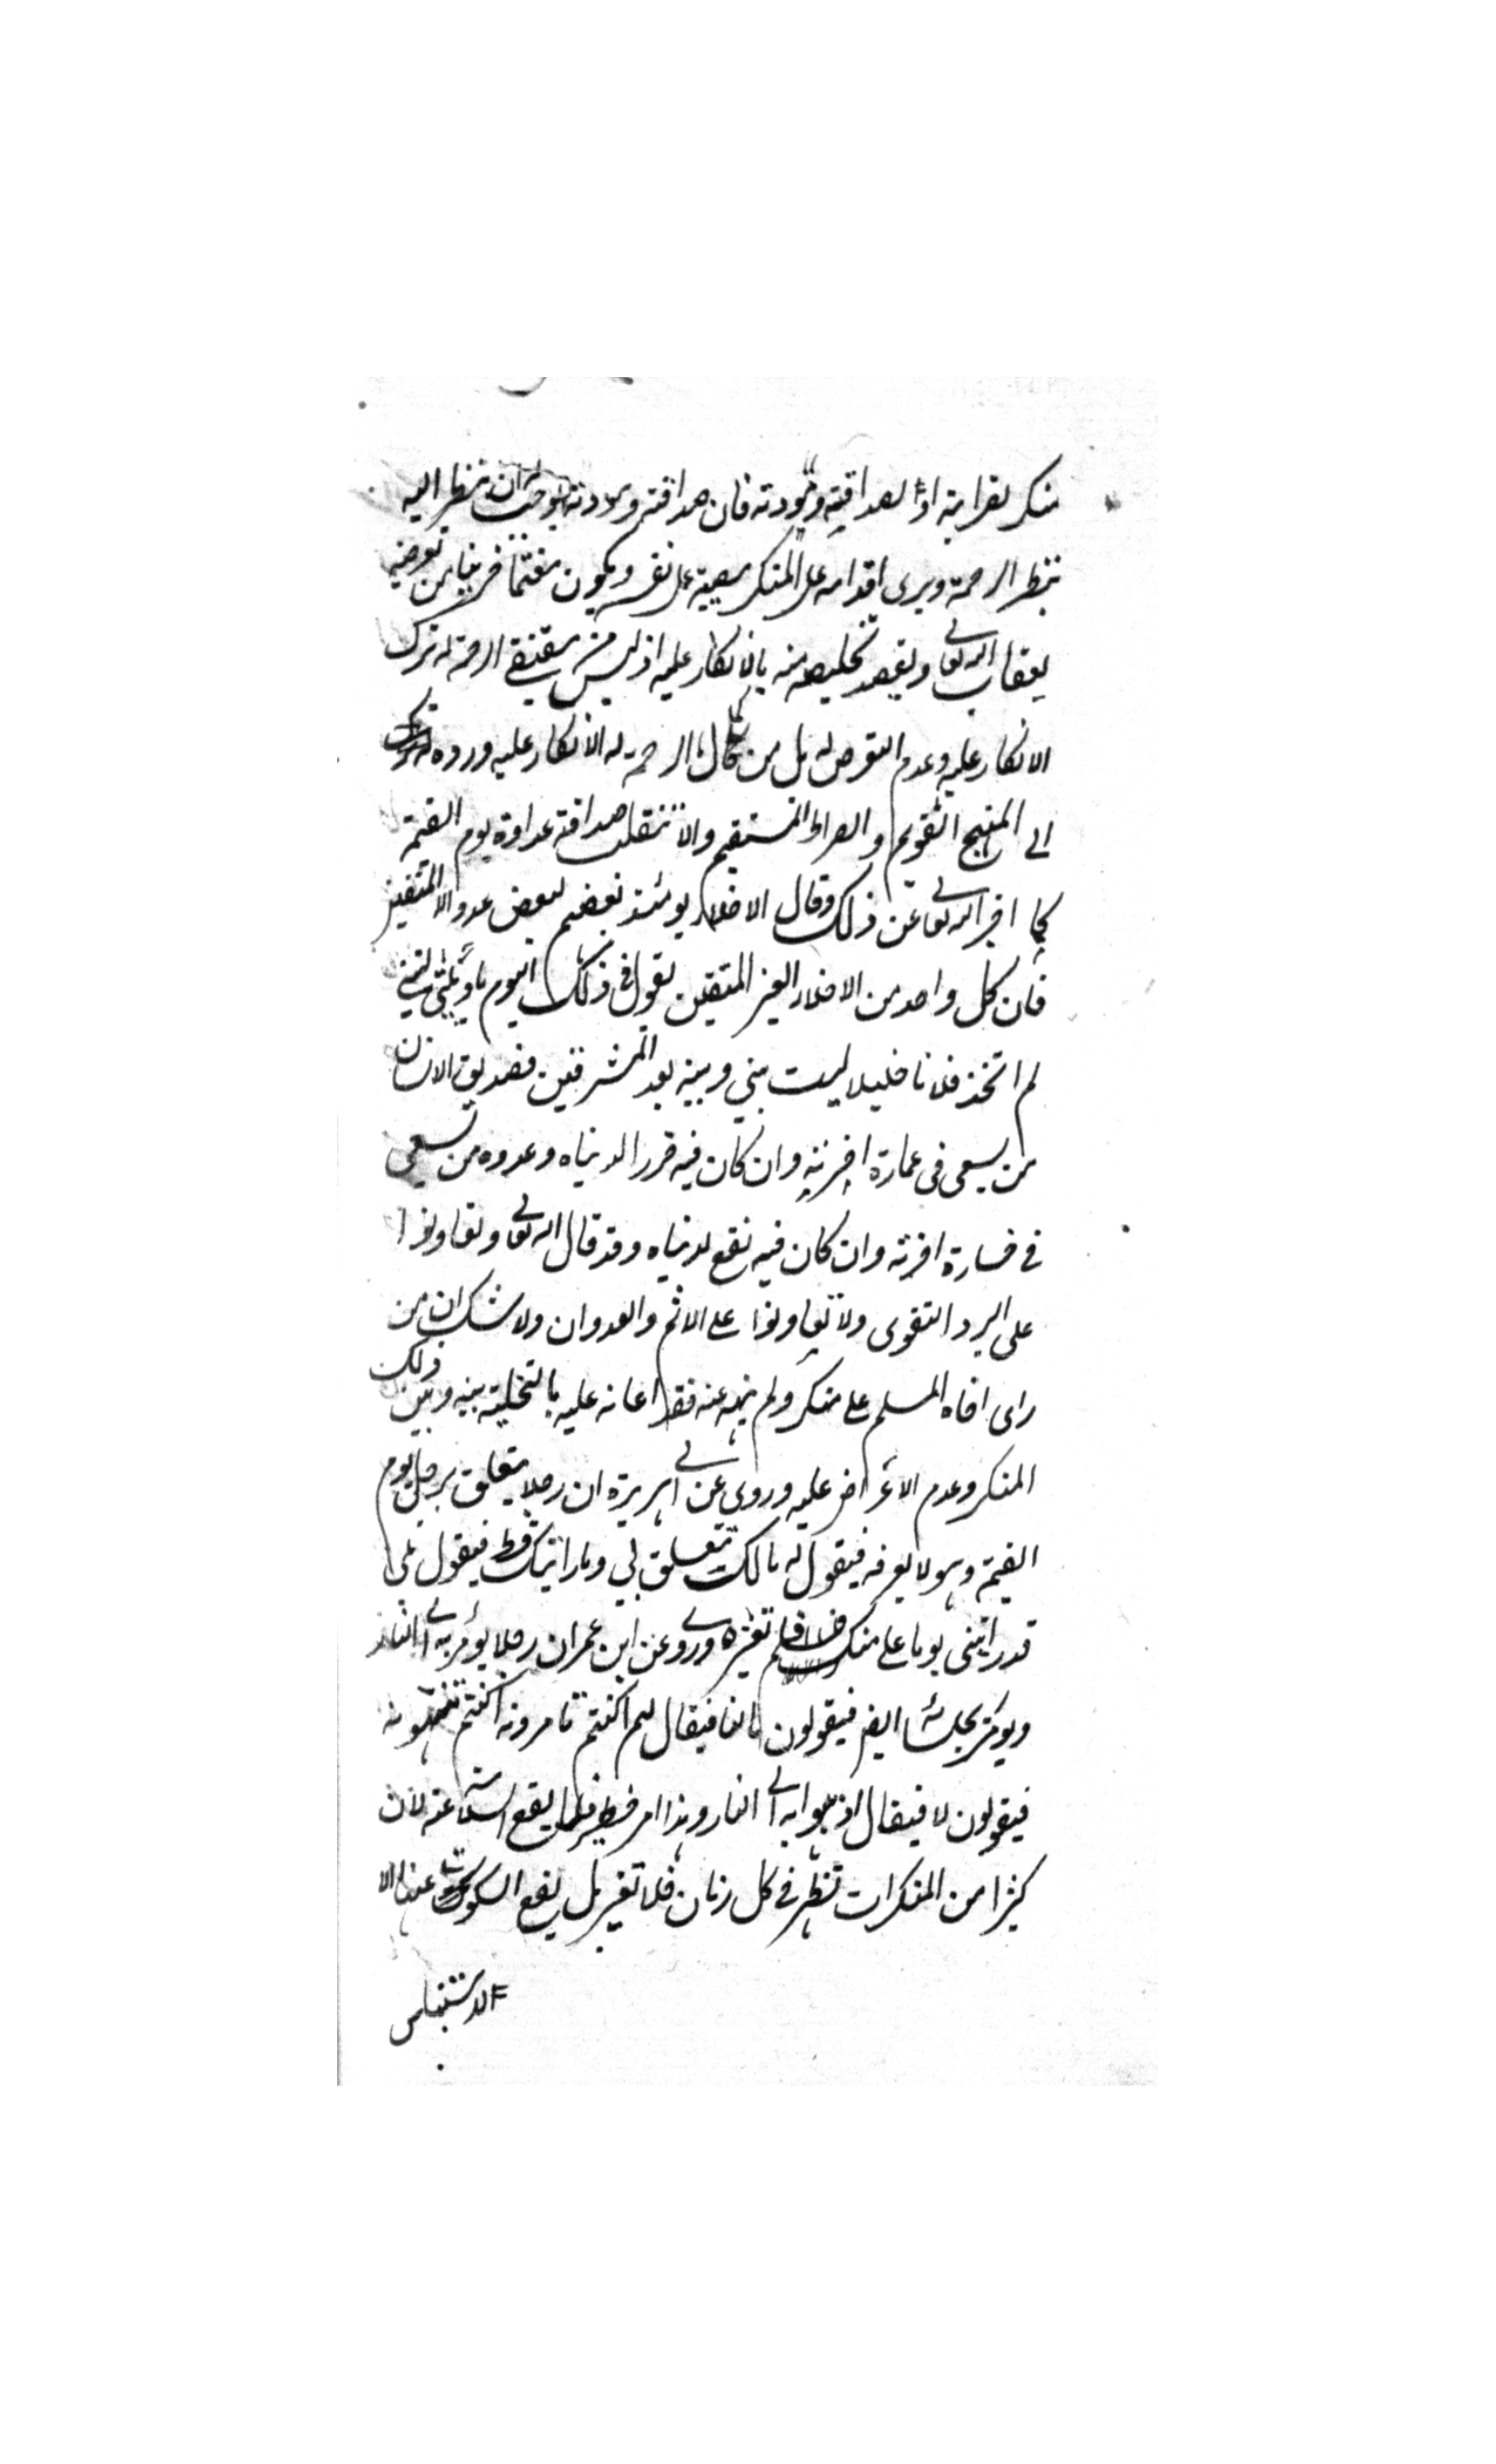 منكر لقرابته او لصداقته ومودته فان صداقته ومودته توجب ان ينظر اليه
بنظر الرحمة ويرى اقدامه على المنكر مصيبة على نفسه ويكون مغتما حزينا من تعرضه
لعقاب الله تعالى ويقصد تخليصه منه بالانكار عليه اذ ليس من مقتضى الرحمة له ترك
الانكار عليه وعدم التعرض له بل من كمال الرحمة له الانكار عليه ورده
الى المنهج القويم والصراط المستقيم والا تنقلب صداقته عداوة يوم القيمة
كما اخبر الله تعالى عن ذلك وقال الاخلاء يومئذ بعضهم لبعض عدو الا المتقين
فان كل واحد من الاخلاء الغير المتقين يقول في ذلك اليوم يا ويلتى ليتني
لم اتخذ فلانا خليلا ليت بيني وبينه بعد المشرقين فصديق الانسان
من يسعى في عمارة اخرته وان كان فيه ضرر لدنياه وعدوه من يسعى
في خسارة اخرته وان كان فيه نفع لدنياه وقد قال الله تعالى وتعاونوا
على البر والتقوى ولا تعاونوا على الاثم والعدوان ولا شك ان من
راى اخاه المسلم على منكر ولم ينهه عنه فقد اعانه عليه بالتخلية بينه وبين ذلك
المنكر وعدم الاعتراض عليه وروى عن ابي هريرة ان رجلا يتعلق برجل يوم
القيمة وهو لا يعرفه فيقول له مالك تتعلق بي وما رايتك قط فيقول بلى
قد رايتني يوما على منكر فلم تغيره وروى عن ابن عمر ان رجلا يؤمر به الى النار
ويؤمر بجلسائه ايضا فيقولون ما لنا فيقال لهم اكنتم تامرونه اكنتم تنهونه
فيقولون لا فيقال اذهبوا به الى النار وهذا امر خطير قلما يقع السلامة عنه لان
كثيرا من المنكرات تظهر في كل زمان فلا تغير بل يقع السكوت عنها الا